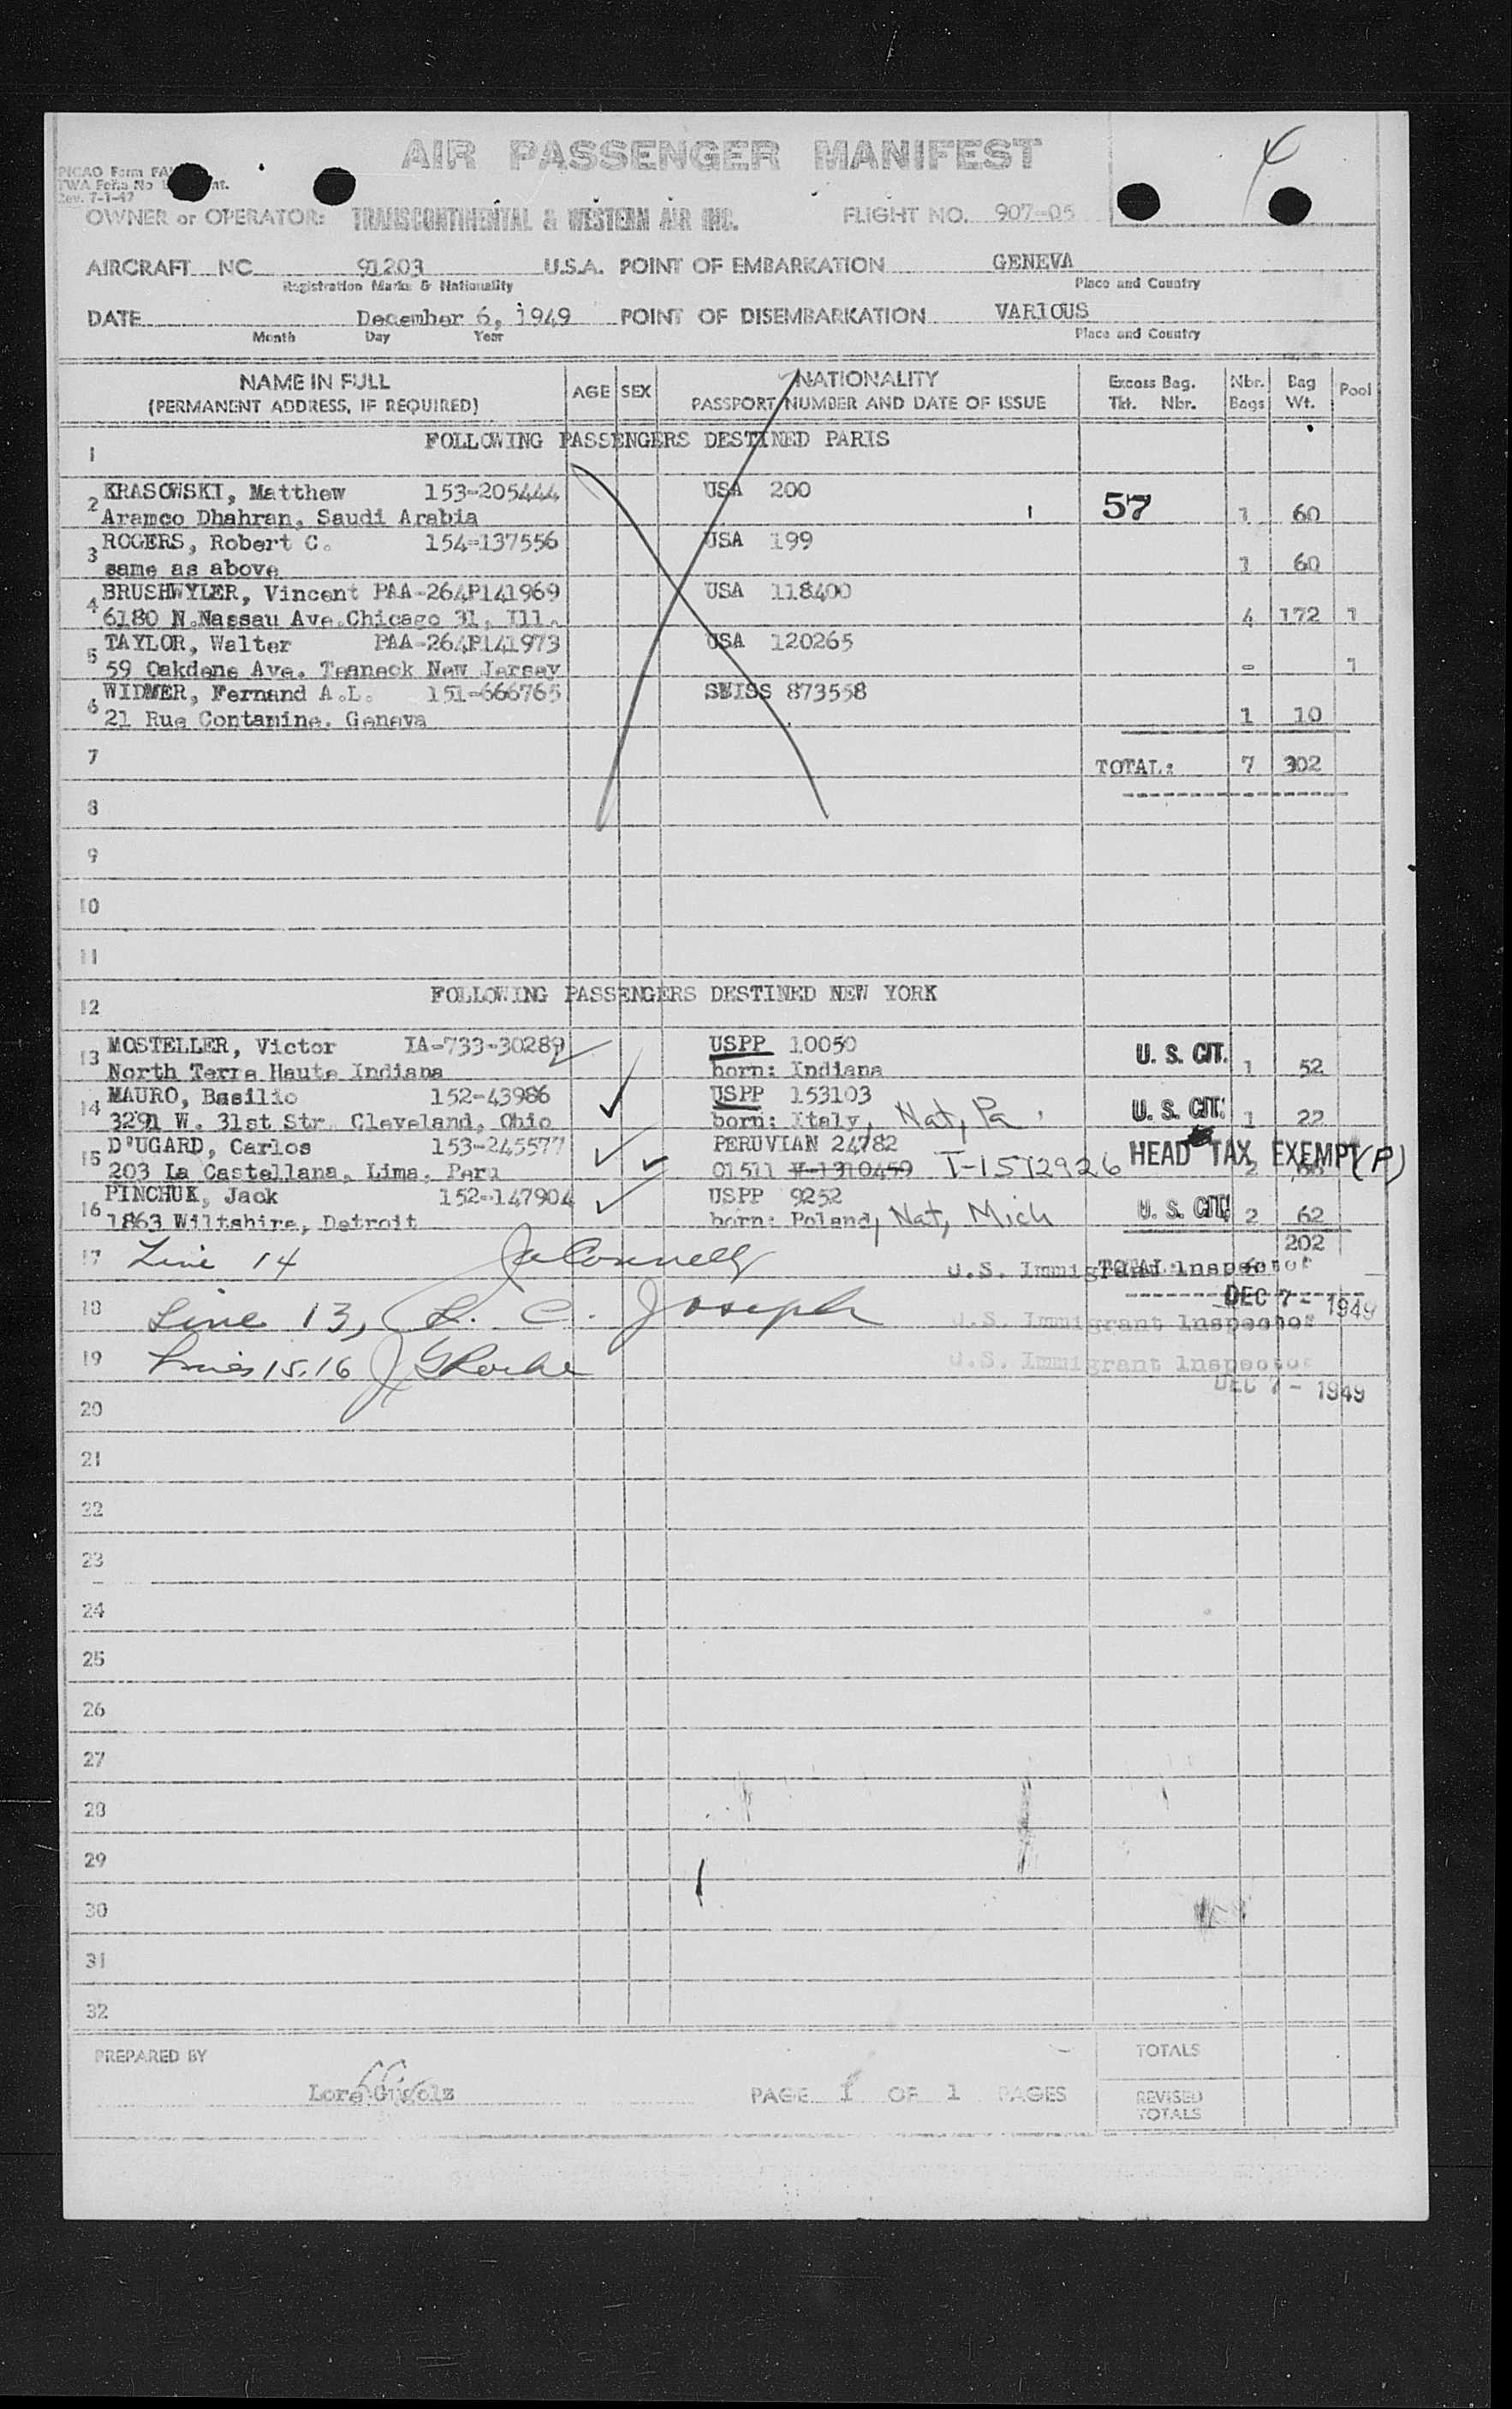 AIR PASSENGER MANIFEST
PICAO Form
TWA Form No
Rev. 7-1-47
4
OWNER or OPERATOR: TRANSCONTINENTAL & WESTERN AIR INC. FLIGHT NO. 907-05
AIRCRAFT NC 91203 U.S.A. POINT OF EMBARKATION GENEVA
Registration Marks & Nationality Place and Country
DATE December 6, 1949 POINT OF DISEMBARKATION VARIOUS
Month Day Year Place and Country
NAME IN FULL AGE SEX NATIONALITY Excess Bag. Nbr. Bag Pool
(PERMANENT ADDRESS, IF REQUIRED) PASSPORT NUMBER AND DATE OF ISSUE Tkt. Nbr. Bags Wt.
1 FOLLOWING PASSENGERS DESTINED PARIS
2 KRASOWSKI, Matthew 153-205444 USA 200
Aramco Dhahran, Saudi Arabia 57 1 60
3 ROGERS, Robert C. 154-137556 USA 199
same as above 1 60
4 BRUSHWYLER, Vincent PAA-264P141969 USA 118400
6180 N.Nassau Ave.Chicago 31, Ill. 4 172 1
5 TAYLOR, Walter PAA-264P141973 USA 120265
59 Oakdene Ave. Teaneck New Jersey - 1
6 WIDMER, Fernand A.L. 151-666765 SWISS 873558
21 Rue Contamine. Geneva 1 10
7 TOTAL: 7 302
8
9
10
11
12 FOLLOWING PASSENGERS DESTINED NEW YORK
13 MOSTELLER, Victor IA-733-30289 USPP 10050 U. S. CIT.
North Terre Haute Indiana born: Indiana 1 52
14 MAURO, Basilio 152-43986 USPP 153103 U. S. CIT.
3291 W. 31st Str. Cleveland, Ohio born: Italy, Nat, Pa. 1 22
15 D'UGARD, Carlos 153-245577 PERUVIAN 24782 HEAD TAX EXEMPT (P)
203 La Castellana, Lima. Peru 01511 V-1310459 I-1512926 2
16 PINCHUK, Jack 152-147904 USPP 9252 U. S. CIT.
1863 Wiltshire, Detroit born: Poland, Nat, Mich 2 62
202
17 Line 14 U.S. Immigrant Inspector TOTAL
DEC 7 - 1949
18 Line 13, L. C. Joseph U.S. Immigrant Inspector
19 Lines 15.16 U.S. Immigrant Inspector
DEC 7 - 1949
20
21
22
23
24
25
26
27
28
29
30
31
32
PREPARED BY TOTALS
Lore PAGE 1 OF 1 PAGES REVISED
TOTALS